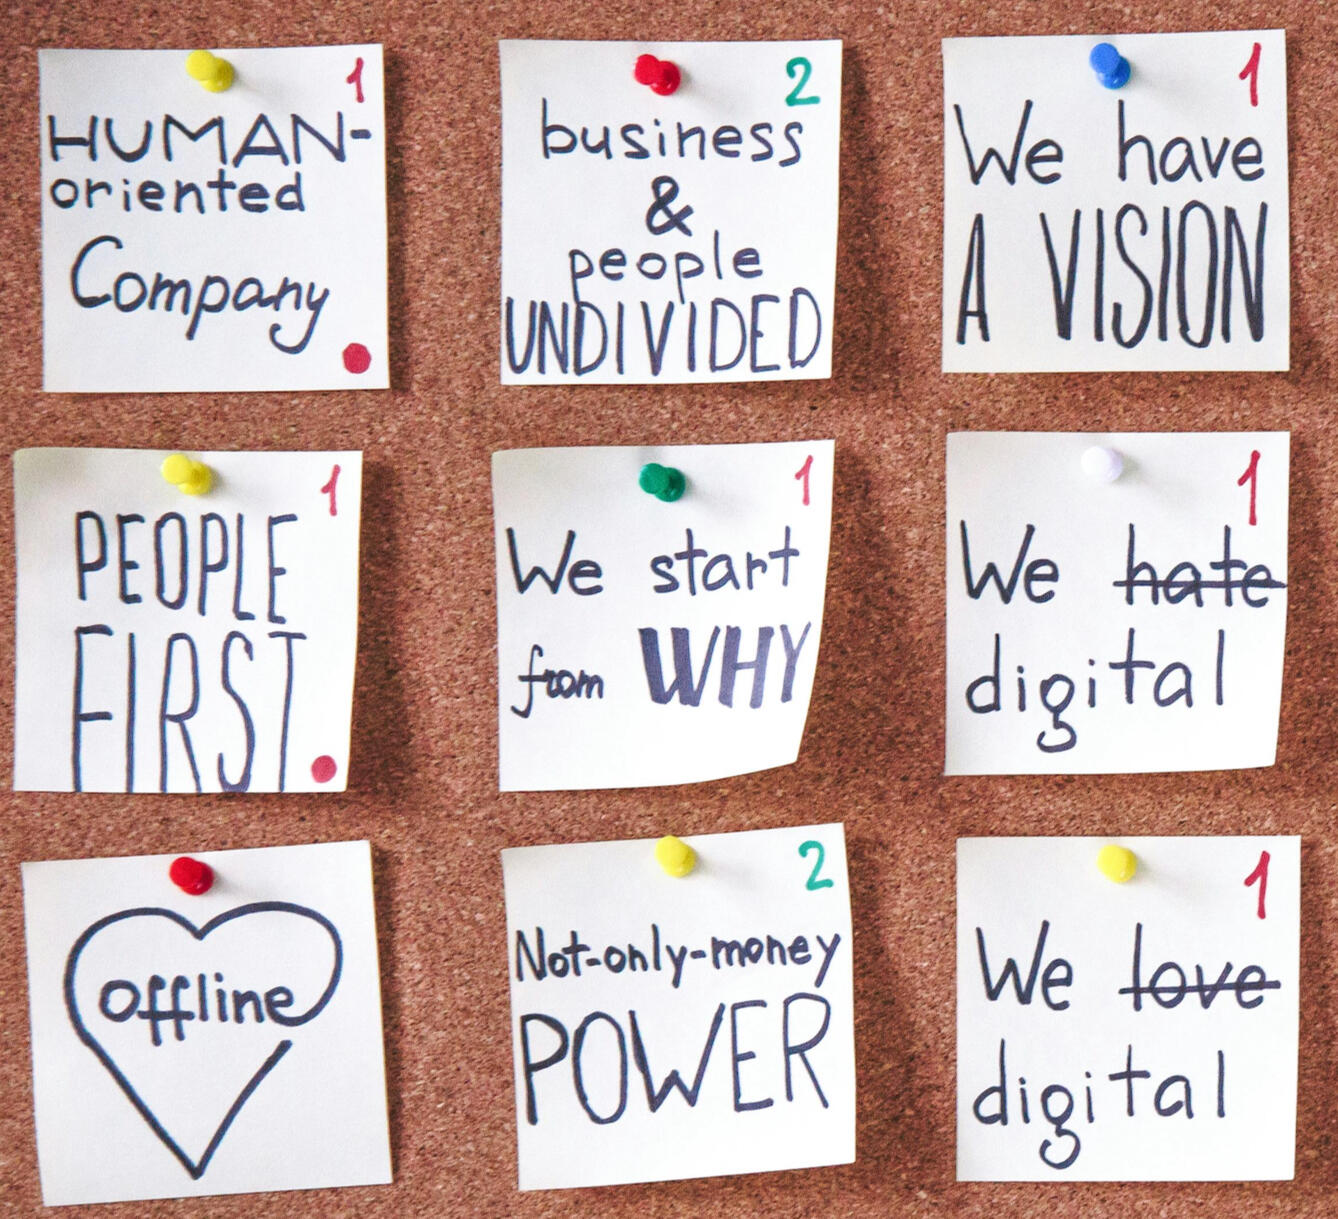 1
HUMAN-
oriented
Company
2
business
&
people
UNDIVIDED
1
We have
A VISION
1
PEOPLE
FIRST
1
We start
from WHY
1
We hate
digital
offline
2
Not-only-money
POWER
1
We love
digital